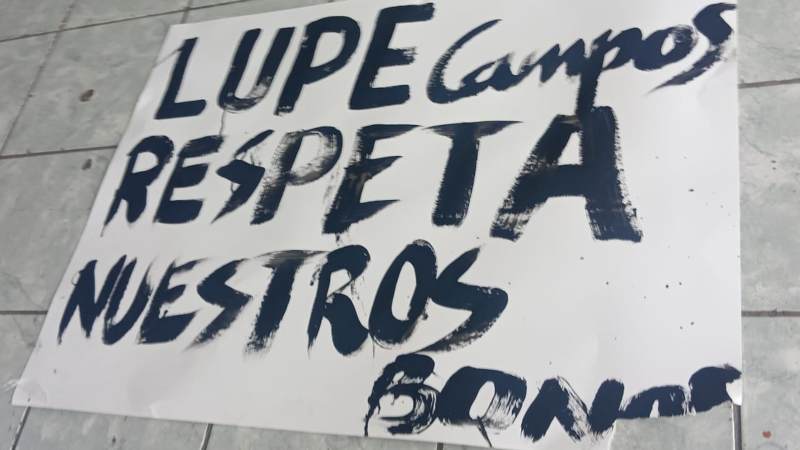 LUPE Campos
RESPETA
NUESTROS
BONOS